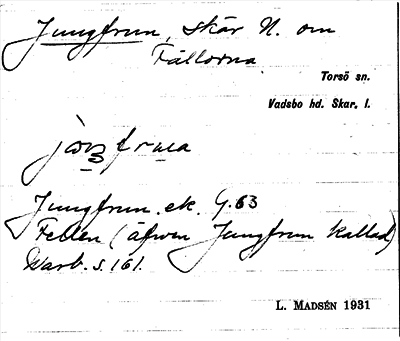 Jungfrun, skär N. om
Fällorna
Torsö sn.
Vadsbo hd. Skar. l.
Jungfrun. ek. G. 63
Fellen (äfven Jungfrun kallad)
Warb. s. 161.
L. Madsén 1931